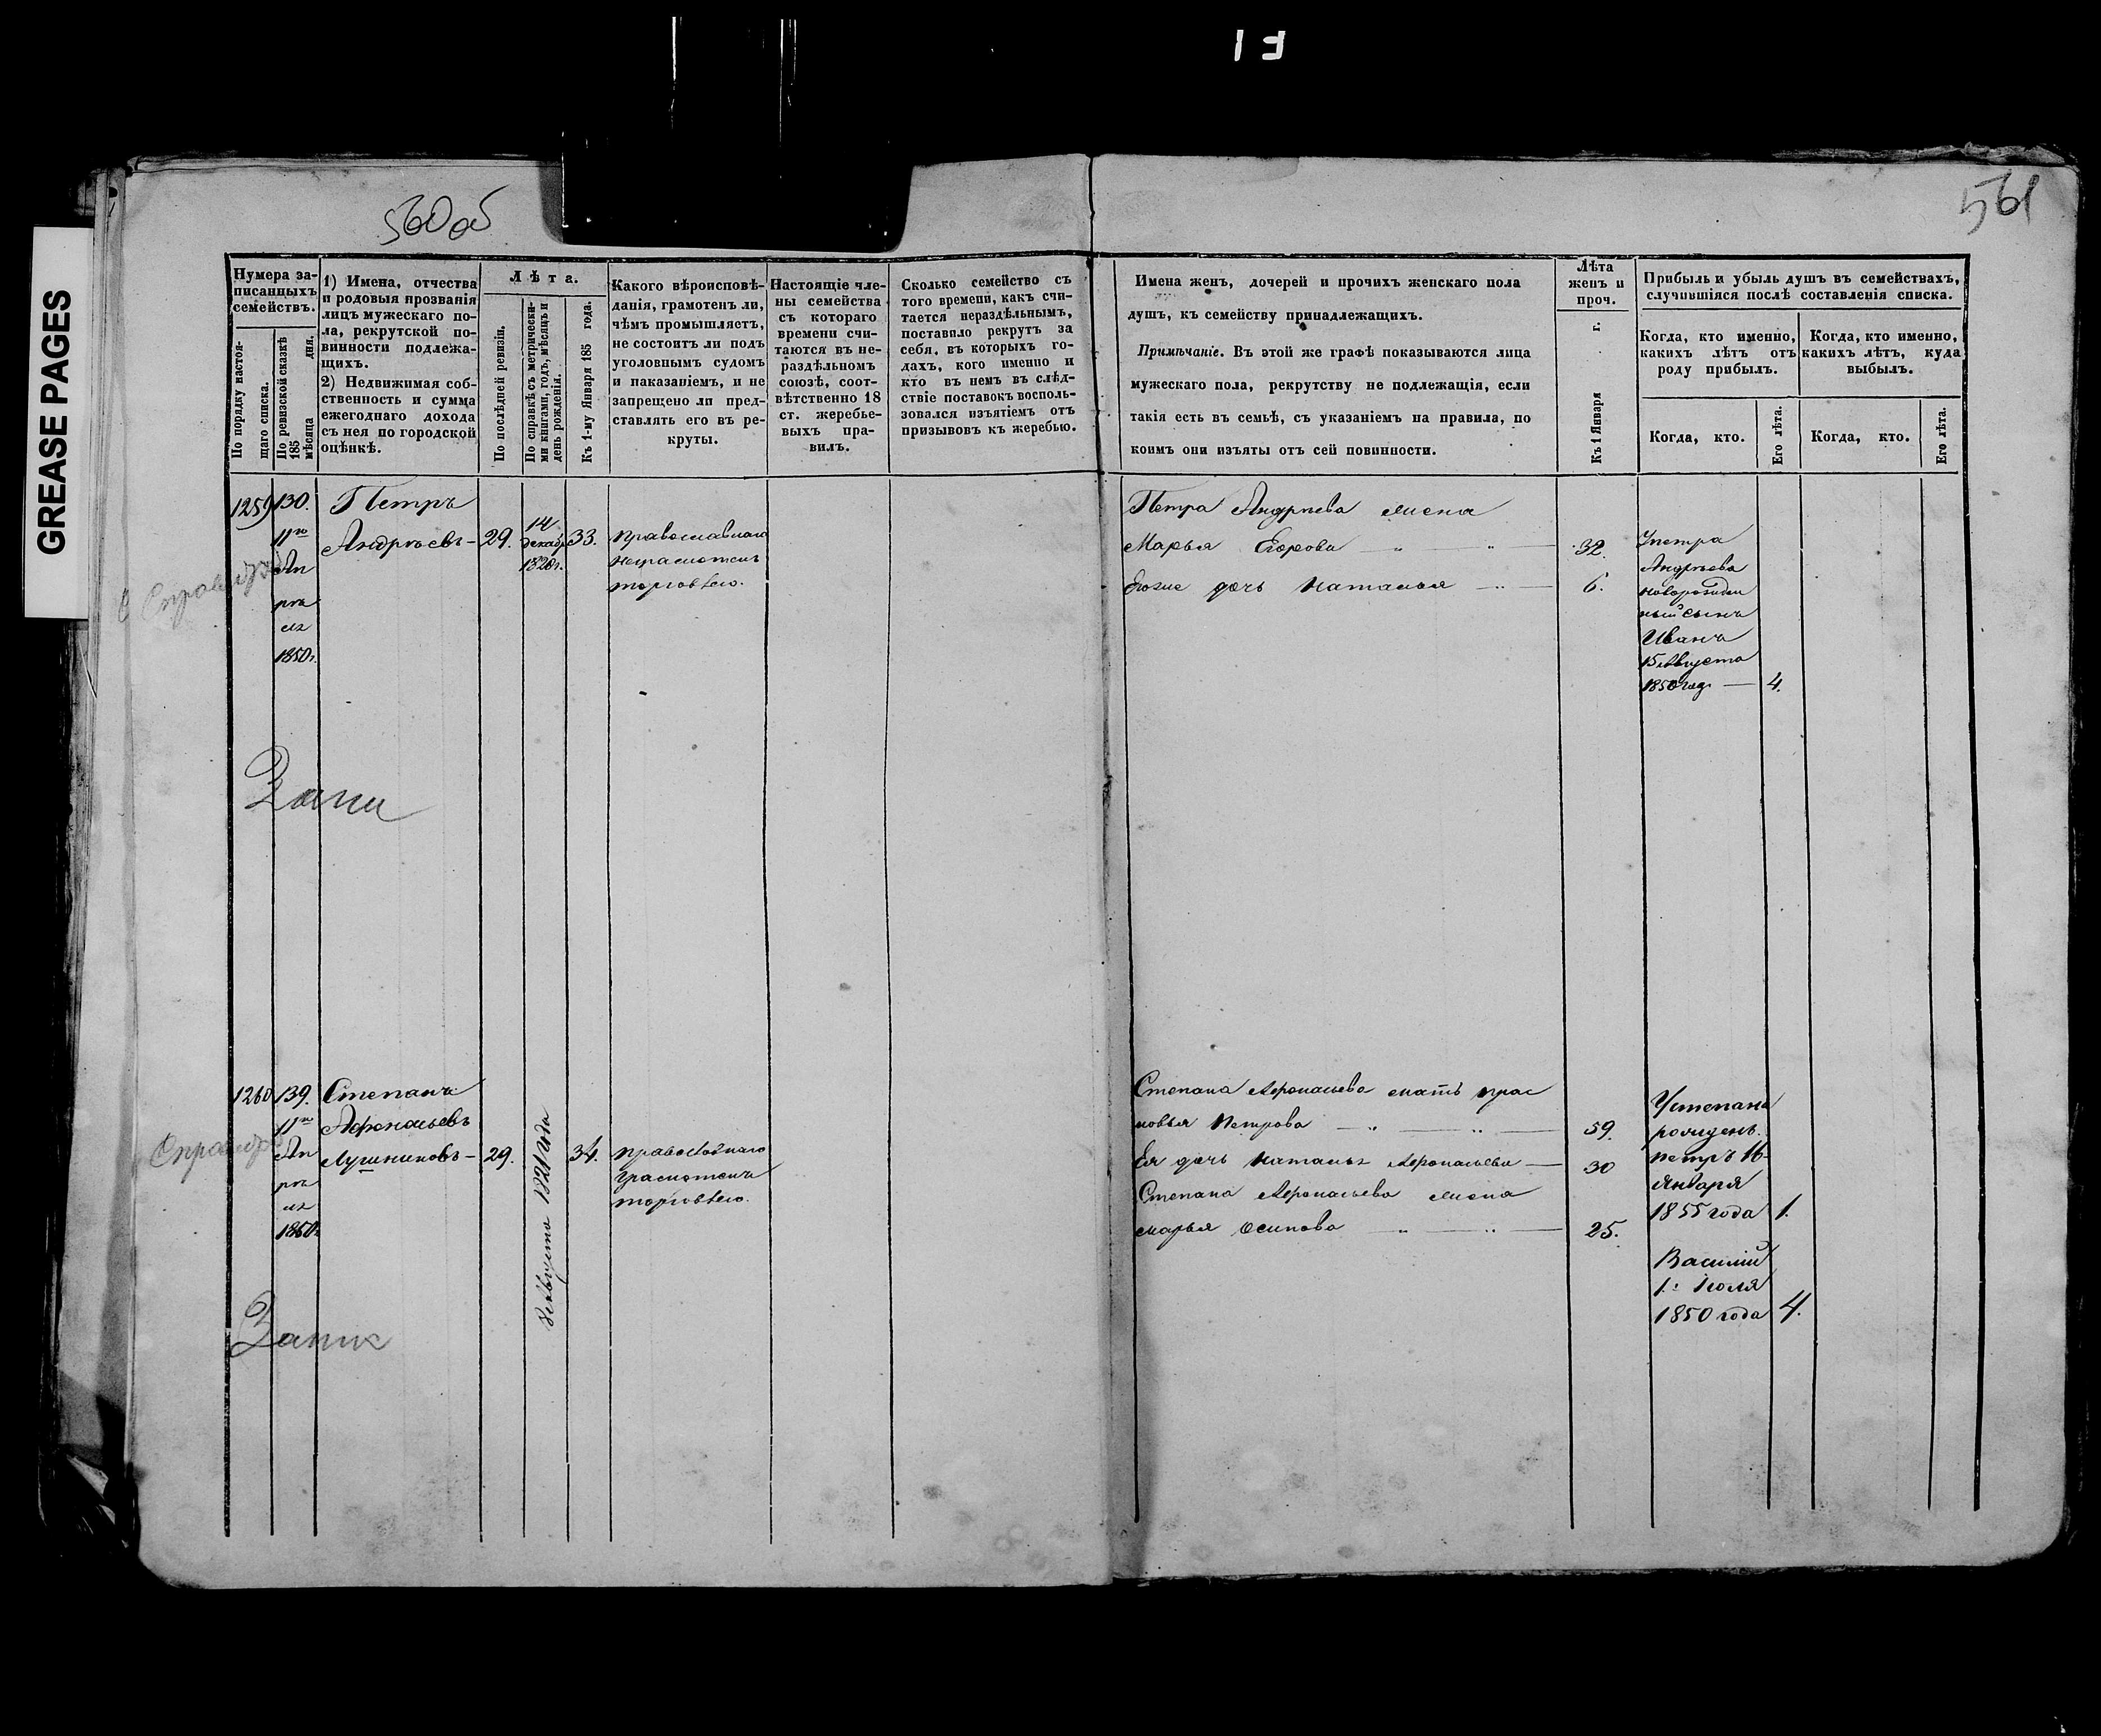 GREASE PAGES
560 об
561
Нумера за-
писанныхъ
семействъ.
По порядку настоя-
щаго списка.
По ревизской сказкѣ
185 мѣсяца дня.
1) Имена, отчества
и родовыя прозванія
лицъ мужескаго по-
ла, рекрутской по-
винности подлежа-
щихъ.
2) Недвижимая соб-
ственность и сумма
ежегоднаго дохода
съ нея по городской
оцѣнкѣ.
Лѣта.
По послѣдней ревизіи.
По справкѣ съ метрически-
ми книгами, годъ, мѣсяцъ и
день рожденія.
Къ 1-му Января 185 года.
Какого вѣроисповѣ-
данія, грамотенъ ли,
чѣмъ промышляетъ,
не состоитъ ли подъ
уголовнымъ судомъ
и наказаніемъ, и не
запрещено ли пред-
ставлять его въ ре-
круты.
Настоящіе чле-
ны семейства
съ котораго
времени счи-
таются въ не-
раздѣльномъ
союзѣ, соот-
вѣтственно 18
ст. жеребье-
выхъ пра-
вилъ.
Сколько семейство съ
того времени, какъ счи-
тается нераздѣльнымъ,
поставило рекрутъ за
себя, въ которыхъ го-
дахъ, кого именно и
кто въ немъ въ слѣд-
ствіе поставокъ восполь-
зовался изъятіемъ отъ
призывовъ къ жеребью.
Имена женъ, дочерей и прочихъ женскаго пола
душъ, къ семейству принадлежащихъ.
Примѣчаніе. Въ этой же графѣ показываются лица
мужескаго пола, рекрутству не подлежащія, если
такія есть въ семьѣ, съ указаніемъ на правила, по
коимъ они изъяты отъ сей повинности.
Лѣта
женъ и
проч.
Къ 1 Января г.
Прибыль и убыль душъ въ семействахъ,
случившіяся послѣ составленія списка.
Когда, кто именно,
какихъ лѣтъ отъ
роду прибылъ.
Когда, кто именно,
какихъ лѣтъ, куда
выбылъ.
Когда, кто.
Его лѣта.
Когда, кто.
Его лѣта.
1259
130.
11го
Ап
рѣ
ля
1850г.
Петръ
Андрѣевъ
29.
14
декабр
1820г.
33.
православнаго
неграмотенъ
торговлею.
Петра Андрѣева жена
Марья Егорова
32.
дочь Наталья
6.
У петра
Андрѣева
новорожден
ный сынъ
Иванъ
15 Августа
1850 год
4.
1260
139.
11го
Ап
рѣ
ля
1850г.
Степанъ
Афонасьевъ
Лушниковъ
29.
Августа 1821 года
34.
православнаго
грамотенъ
торговлею.
Степана Афонасьева мать прас
ковья Петрова
59.
Ея дочь Наталья Афонасьева
30
Степана Афонасьева жена
марья Осипова
25.
У степана
рожденъ
петръ 16
Января
1855 года
1.
Василий
1. Июля
1850 года
4.